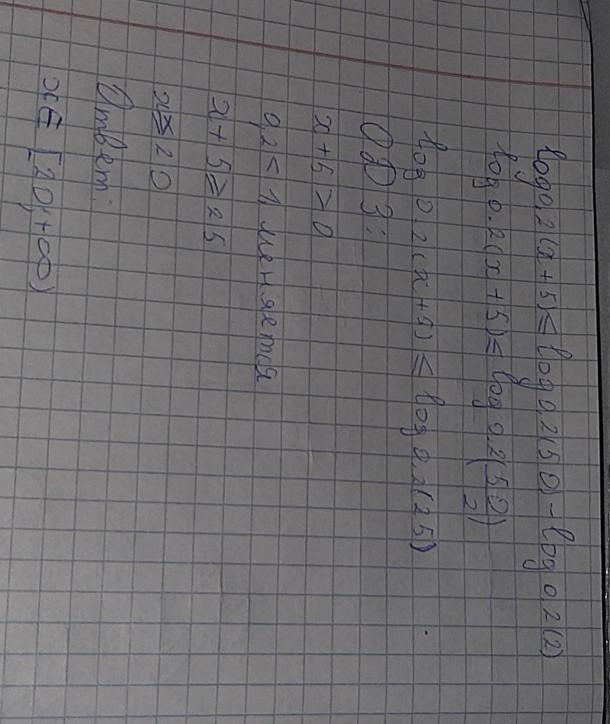 log 0.2 (x + 5) ≤ log 0.2 (5 0) - log 0.2 (2)
log 0.2 (x + 5) ≤ log 0.2 (50/2)
log 0.2 (x + 5) ≤ log 0.2 (25)
ОДЗ:
x + 5 > 0
0,2 < 1 меняется
x + 5 ≥ 25
x ≥ 20
Ответ:
x ∈ [20; +∞)